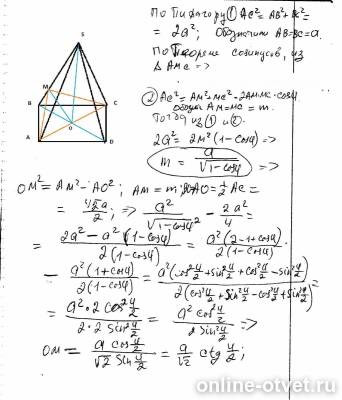 S
M
B C
O
A D
По Пифагору ① AC² = AB² + BC² =
= 2a²; Обозначим AB=BC=a.
По Теореме косинусов, из
△ AMC =>
② AC² = AM² + MC² - 2AM·MC·cosφ
AM=MC = m.
Тогда из ① и ②.
2a² = 2m²(1-cosφ) =>
m = a/√(1-cosφ)
OM² = AM² - AO²; AM = m; AO = ½ AC =
= √2a/2; => a²/√(1-cosφ)² - 2a²/4 =
= (2a² - a²(1-cosφ))/(2(1-cosφ)) = a²(2-1+cosφ)/(2(1-cosφ))
= a²(1+cosφ)/(2(1-cosφ)) = a²(cos²φ/2 + sin²φ/2 + cos²φ/2 - sin²φ/2)/(2(cos²φ/2 + sin²φ/2 - cos²φ/2 + sin²φ/2)) =
= a²·2cos²φ/2/(2·2sin²φ/2) = a²cos²φ/2/(2sin²φ/2) =>
OM = a cosφ/2/(√2 sinφ/2) = a/√2 ctg φ/2;
online-otvet.ru